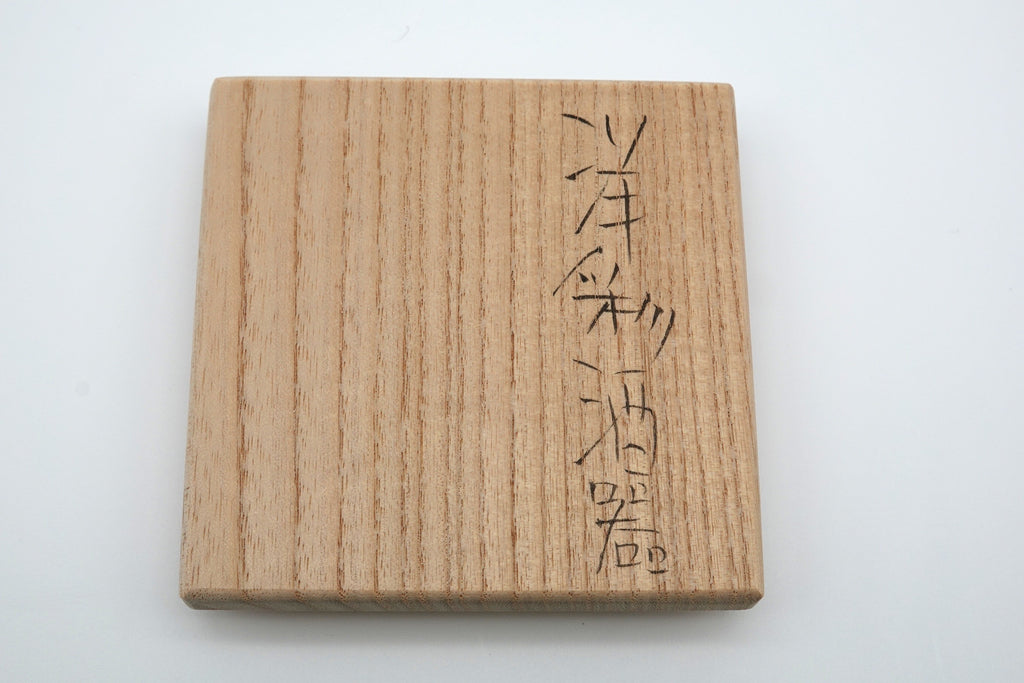 洋彩酒器